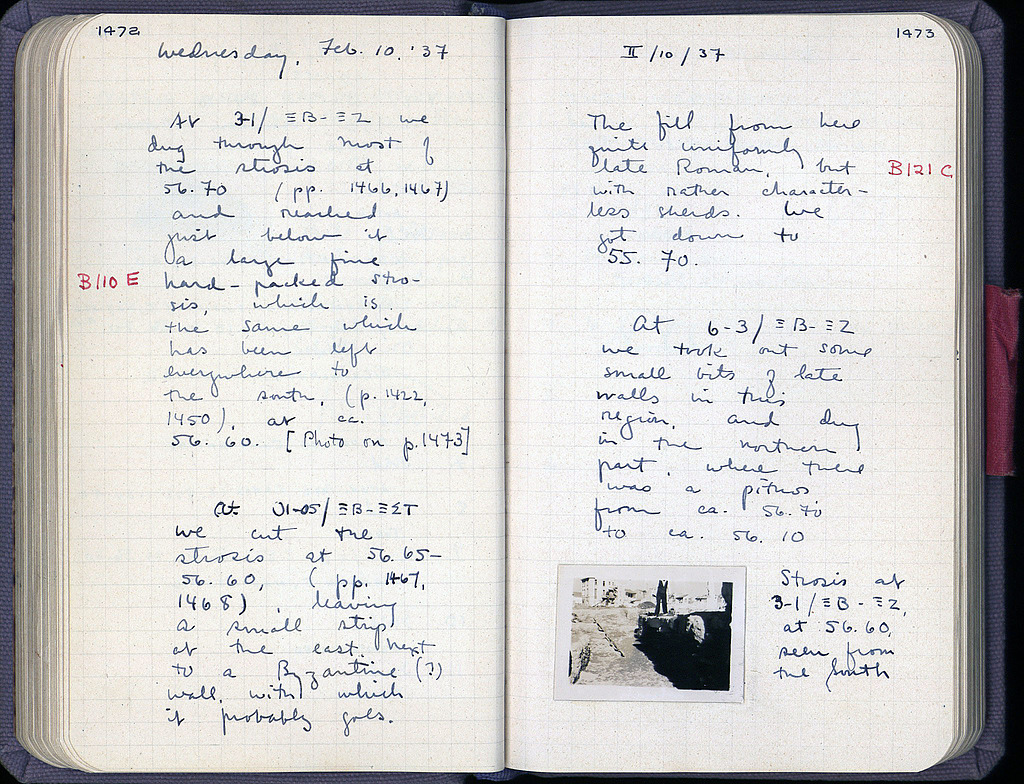 1472
Wednesday, Feb. 10, '37
At 3-1/ΞΒ-ΞΖ we
dug through most of
the strosis at
56.70 (pp. 1466, 1467)
and reached
just below it
a large fine
B110 E
hard-packed stro-
sis, which is
the same which
has been left
everywhere to
the south, (p. 1422,
1450), at ca.
56.60. [Photo on p. 1473]
At 01-05/ΞΒ-ΞΣΤ
we cut the
strosis at 56.65-
56.60, (pp. 1467,
1468), leaving
a small strip
at the east, next
to a Byzantine (?)
wall with which
it probably goes.
1473
II/10/37
The fill from here
quite uniformly
late Roman, but
B121 C
with rather character-
less sherds. We
got down to
55.70.
At 6-3/ΞΒ-ΞΖ
we took out some
small bits of late
walls in this
region, and dug
in the northern
part, where there
was a pithos
from ca. 56.70
to ca. 56.10
Strosis at
3-1/ΞΒ-ΞΖ,
at 56.60,
seen from
the South